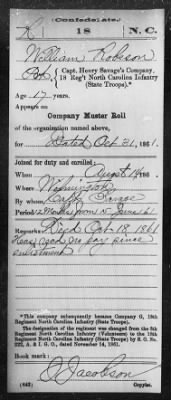 Confederate.
R 18 N.C.
William Robison
Pvt, Capt. Henry Savage's Company,
18 Reg't North Carolina Infantry
(State Troops).*
Age 17 years.
Appears on
Company Muster Roll
of the organization named above,
for dated Oct 31, 1861.
Joined for duty and enrolled:
When August 14, 186 .
Where Wilmington
By whom Capt Savage
Period 12 Months from 15 June 61
Remarks: Died Oct. 18, 1861
Has had no pay since
enlistment
*This company subsequently became Company G, 18th
Regiment North Carolina Infantry (State Troops).
The designation of the regiment was changed from the 8th
Regiment North Carolina Infantry (Volunteers) to the 18th
Regiment North Carolina Infantry (State Troops) by S. O. No.
222, A. & I. G. O., dated November 14, 1861.
Book mark:
J Jacobson
(642) Copyist.